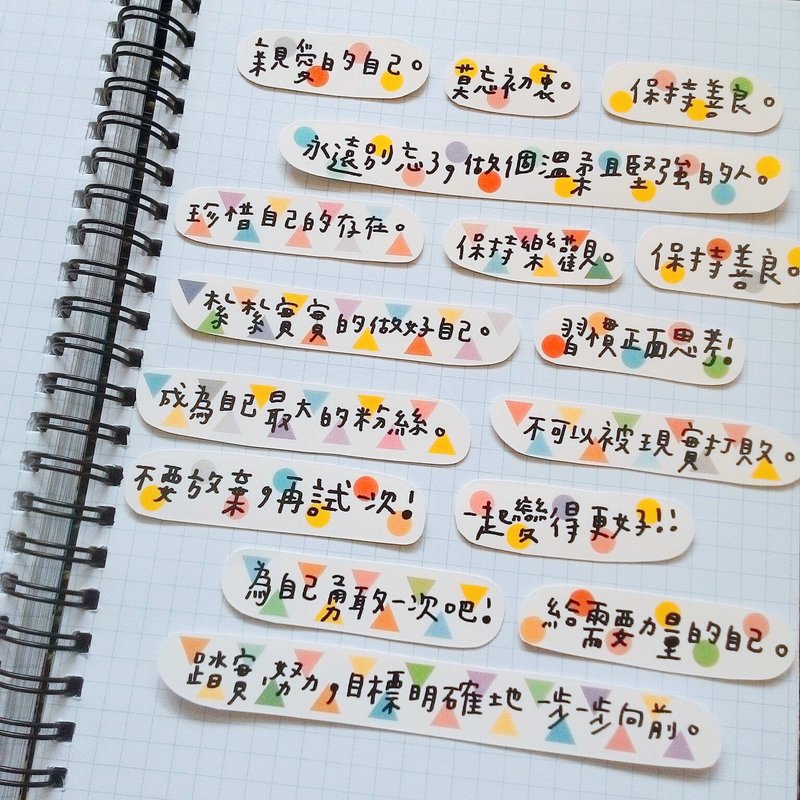 親愛的自己。
莫忘初衷。
保持善良。
永遠別忘了,做個溫柔且堅強的人。
珍惜自己的存在。
保持樂觀。
保持善良。
紮紮實實的做好自己。
習慣正面思考!
成為自己最大的粉絲。
不可以被現實打敗。
不要放棄,再試一次!
一起變得更好!!
為自己勇敢一次吧!
給需要力量的自己。
踏實努力,目標明確地一步一步向前。